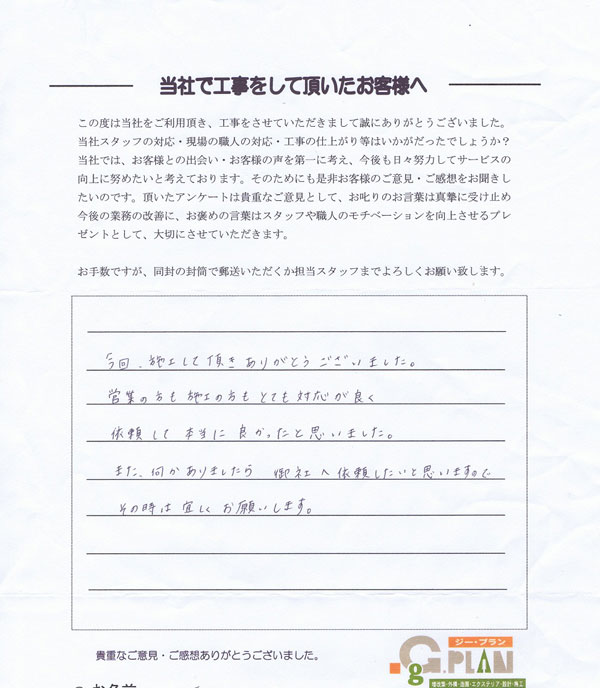 当社で工事をして頂いたお客様へ
この度は当社をご利用頂き、工事をさせていただきまして誠にありがとうございました。
当社スタッフの対応・現場の職人の対応・工事の仕上がり等はいかがだったでしょうか？
当社では、お客様との出会い・お客様の声を第一に考え、今後も日々努力してサービスの
向上に努めたいと考えております。そのためにも是非お客様のご意見・ご感想をお聞きし
たいのです。頂いたアンケートは貴重なご意見として、お叱りのお言葉は真摯に受け止め
今後の業務の改善に、お褒めの言葉はスタッフや職人のモチベーションを向上させるプレ
ゼントとして、大切にさせていただきます。
お手数ですが、同封の封筒で郵送いただくか担当スタッフまでよろしくお願い致します。
今回、施工して頂きありがとうございました。
営業の方も施工の方もとても対応が良く
依頼して本当に良かったと思いました。
また、何かありましたら 御社へ依頼したいと思いますので
その時は宜しくお願いします。
貴重なご意見・ご感想ありがとうございました。
ジー・プラン
g G.PLAN
増改築・外構・造園・エクステリア・設計・施工